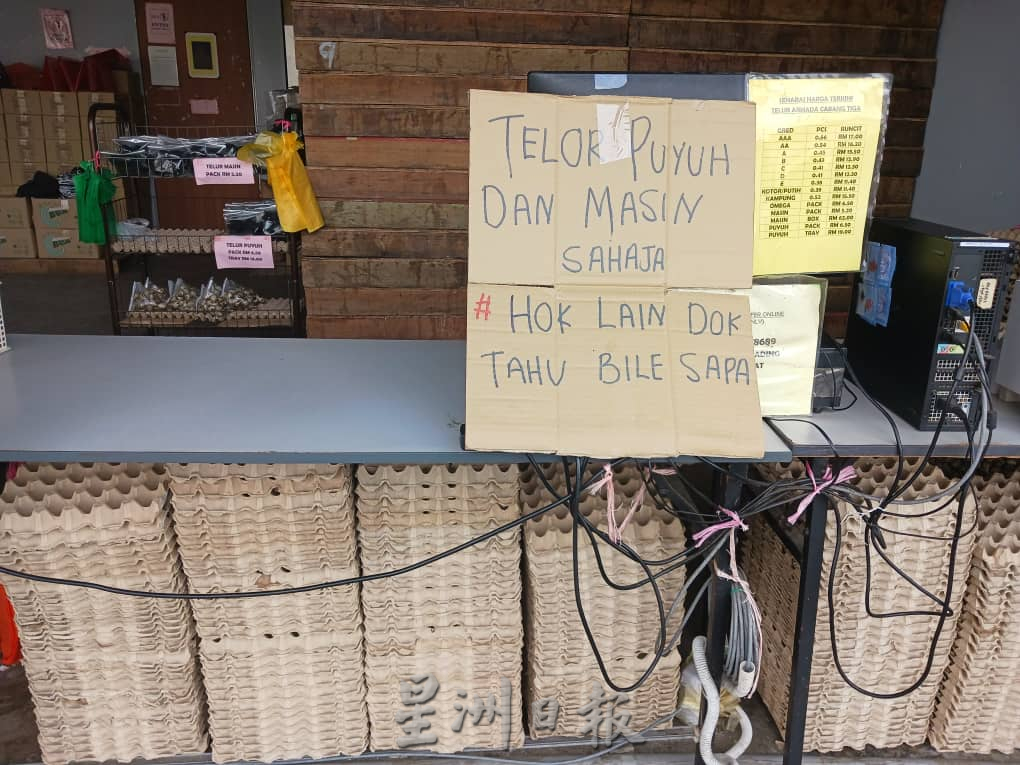 TELOR PUYUH
DAN MASIN
SAHAJA
# HOK LAIN DOK
TAHU BILE SAPA
SENARAI HARGA TERKINI
TELUR ARMADA CABANG TIGA
GRED PCI RUNCIT
AAA 0.56 RM 17.00
AA 0.54 RM 16.20
A 0.45 RM 13.50
B 0.43 RM 12.90
C 0.41 RM 12.30
D 0.41 RM 12.30
E 0.38 RM 11.40
KOTOR/PUTIH 0.38 RM 11.40
KAMPUNG 0.52 RM 15.50
OMEGA PACK RM 6.50
MASIN PACK RM 5.20
MASIN BOX RM 63.00
PUYUH PACK RM 6.50
PUYUH TRAY RM 19.00
TELUR MASIN
PACK RM 5.20
TELUR PUYUH
ONLINE
8689
ADING
AT
星洲日報